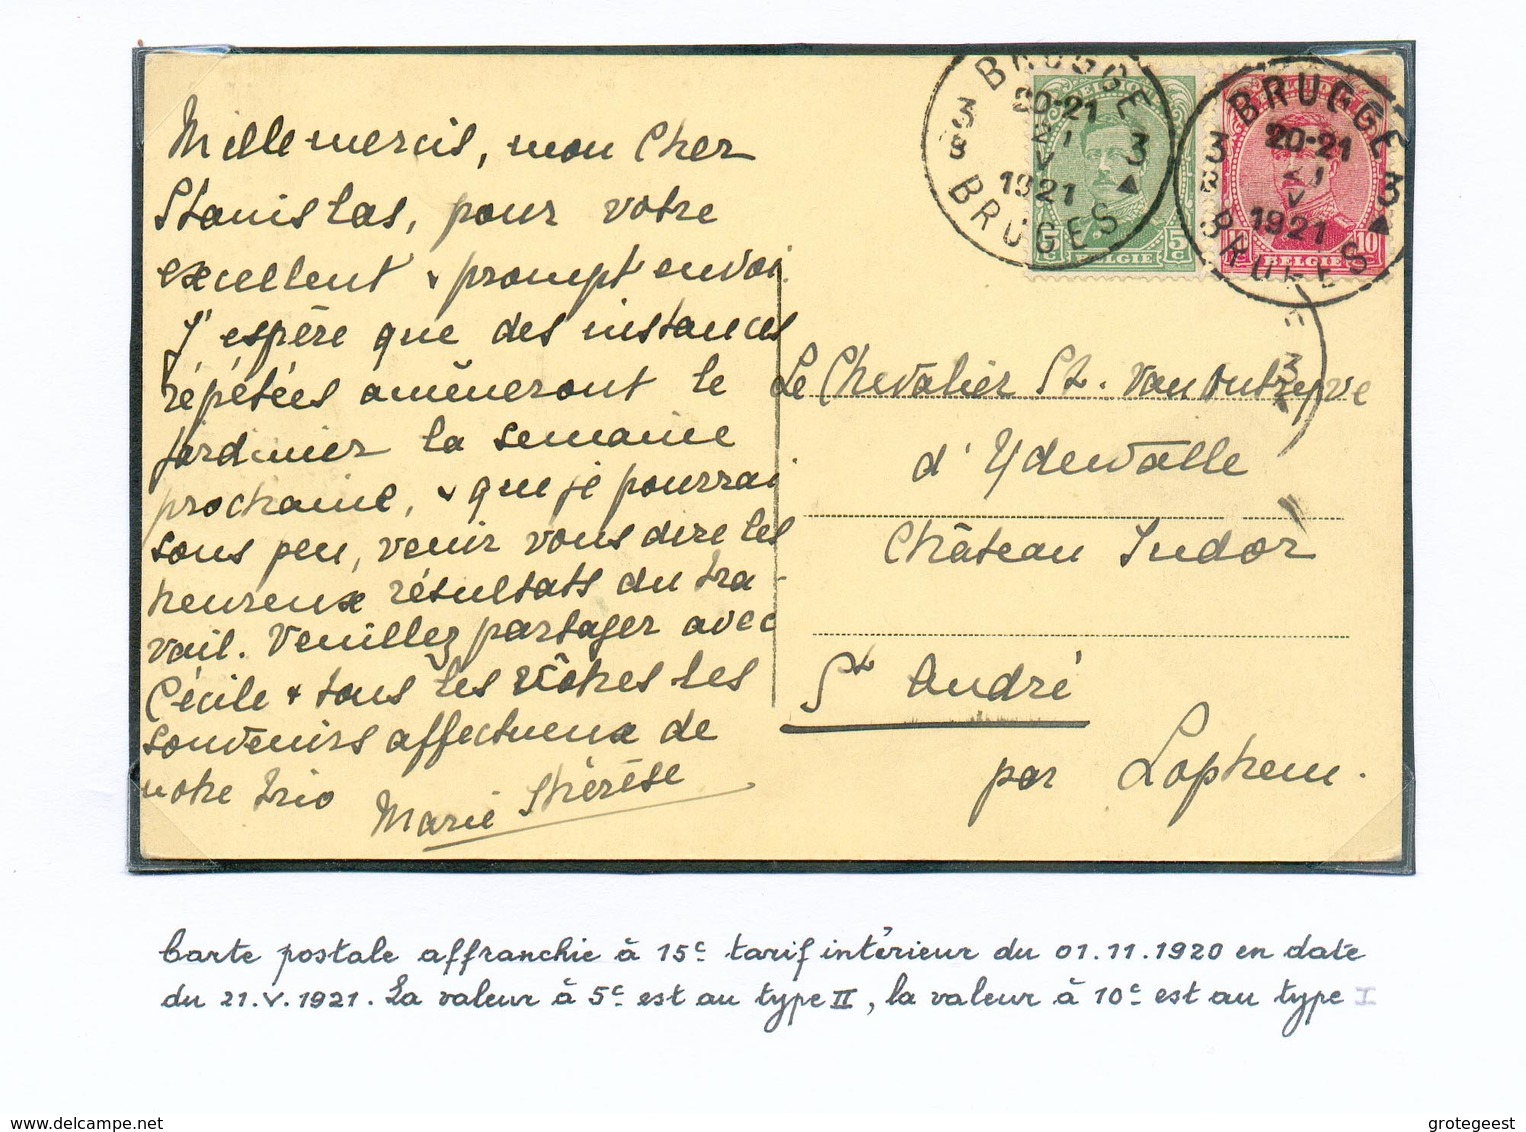 Mille mercis, mon Cher
Stanislas, pour votre
excellent & prompt envoi
J'espère que des instances
répétées amèneront le
jardinier la semaine
prochaine, & que je pourrai
sous peu, venir vous dire les
heureux résultats du tra-
vail. Veuillez partager avec
Cécile & tous les vôtres les
souvenirs affectueux de
notre trio
Marie Thérèse
BRUGGE
20-21
21
V
1921
3
B
3
BRUGES
5c
BELGIE
5c
BRUGGE
20-21
21
V
1921
3
B
3
BRUGES
10
BELGIE
Le Chevalier St. van Outryve
d'Ydewalle
Château Tudor
St André
par Lophem.
Carte postale affranchie à 15c tarif intérieur du 01.11.1920 en date
du 21.V.1921. La valeur à 5c est au type II, la valeur à 10c est au type I
www.delcampe.net
grotegeest